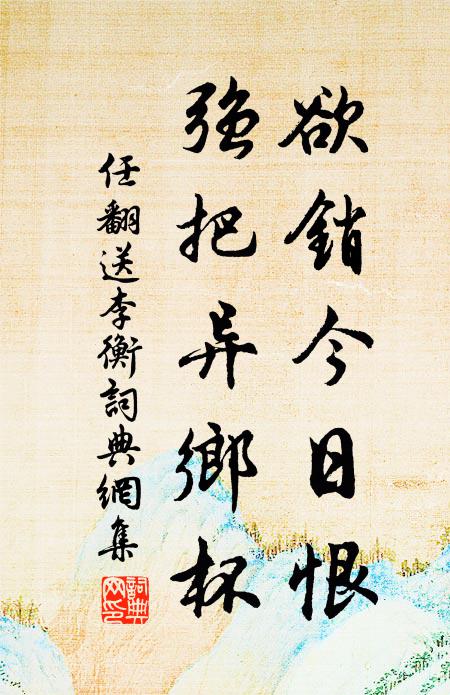 欲銷今日恨
強把异鄉杯
任翻送李衡詞典網集
詞典
网印